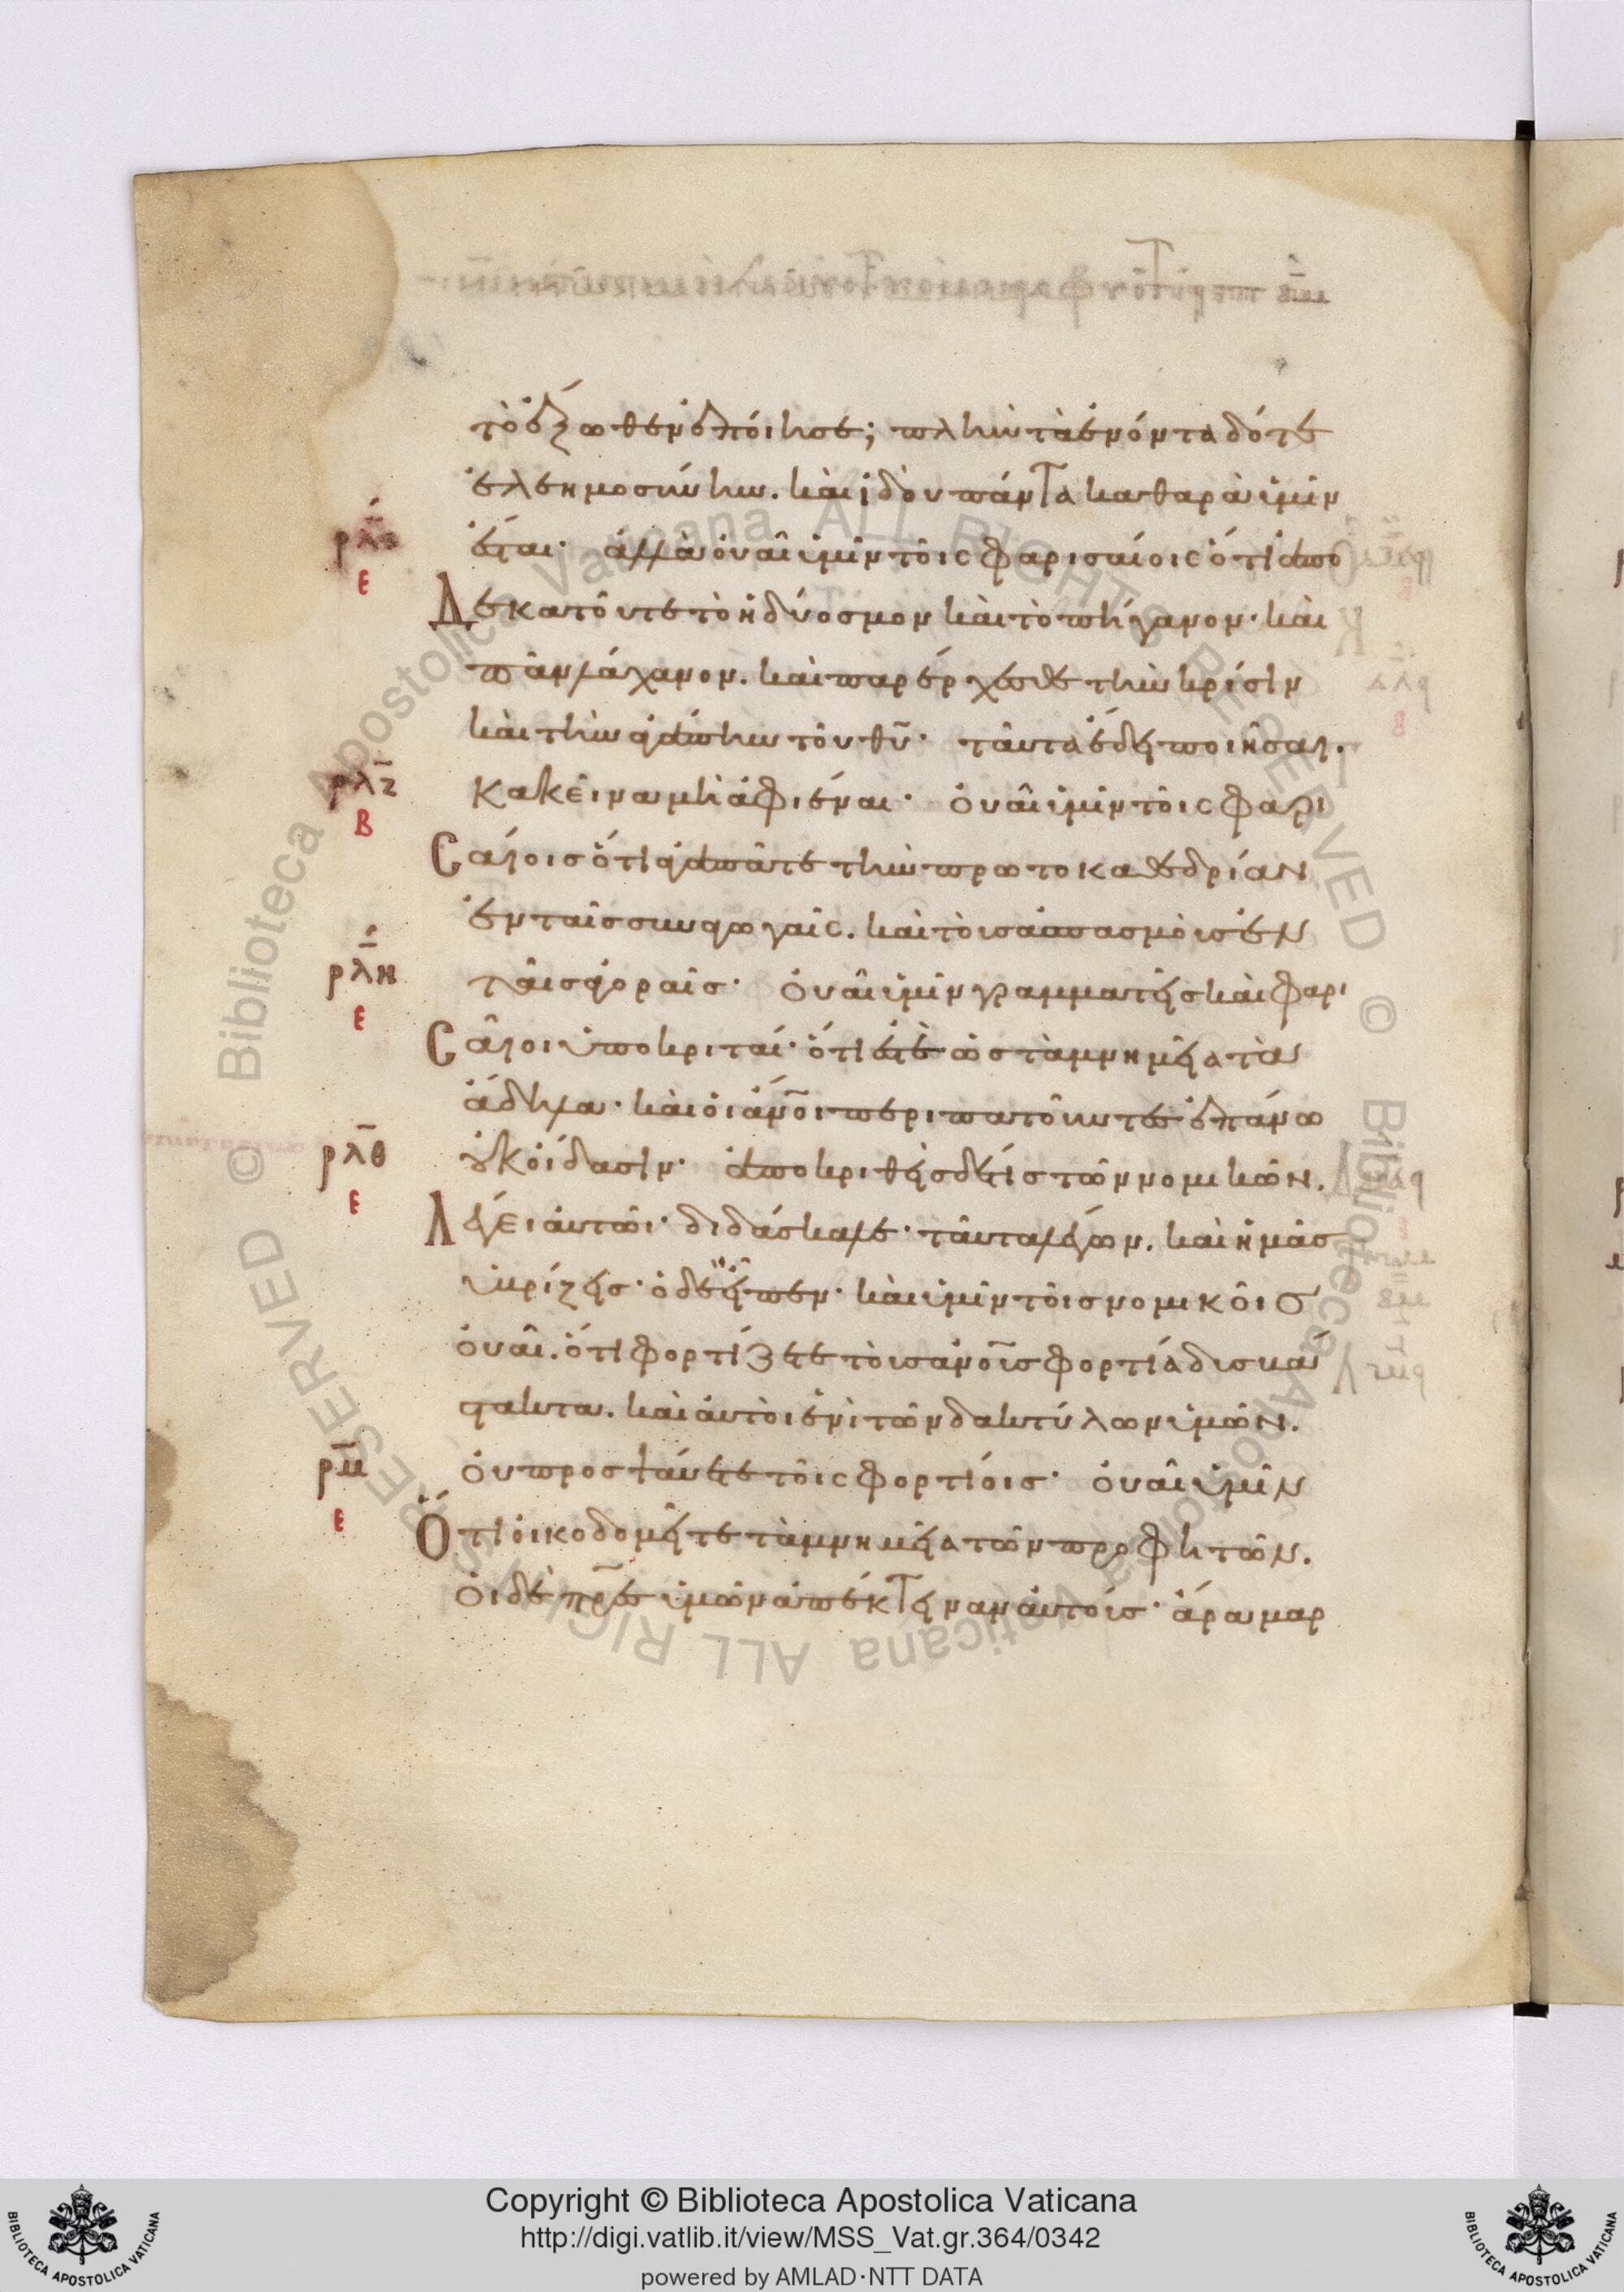 τὸ ἔξωθεν ἐποίησε; πλὴν τὰ ἐνόντα δότε
ἐλεημοσύνην. καὶ ἰδοὺ πάντα καθαρὰ ὑμῖν
ρλϛ ἔσται· ἀλλὰ οὐαὶ ὑμῖν τοῖς φαρισαίοις ὅτι ἀπο
ε
Δεκατοῦτε τὸ ἡδύοσμον καὶ τὸ πήγανον· καὶ
πᾶν λάχανον. καὶ παρέρχεσθε τὴν κρίσιν
καὶ τὴν ἀγάπην τοῦ θυ̅· ταῦτα ἔδει ποιῆσαι.
ρλζ κακεῖνα μὴ ἀφιέναι· οὐαὶ ὑμῖν τοῖς φαρι
β
Σαίοις ὅτι ἀγαπᾶτε τὴν πρωτοκαθεδρίαν
ἐν ταῖς συναγωγαῖς. καὶ τοὺς ἀσπασμοὺς ἐν
ρλη ταῖς ἀγοραῖς· οὐαὶ ὑμῖν γραμματεῖς καὶ φαρι
ε
Σαῖοι ὑποκριταί· ὅτι ἐστὲ ὡς τὰ μνημεῖα τὰ
ἄδηλα· καὶ οἱ ἄνο̅ι περιπατοῦντες ἐπάνω
ρλθ οὐκ οἴδασιν· ἀποκριθεὶς δέ τις τῶν νομικῶν.
ε
Λέγει αὐτῶι· διδάσκαλε· ταῦτα λέγων. καὶ ἡμᾶς
ὑβρίζεις· ὁ δὲ εἶπεν· καὶ ὑμῖν τοῖς νομικοῖς
οὐαί. ὅτι φορτίζετε τοὺς ἀνο̅υς φορτία δυσβά
στακτα. καὶ αὐτοὶ ἑνὶ τῶν δακτύλων ὑμῶν.
ρμ οὐ προσψαύετε τοῖς φορτίοις· οὐαὶ ὑμῖν
ε
Ὅτι οἰκοδομεῖτε τὰ μνημεῖα τῶν προφητῶν.
οἱ δὲ πρε̅ς ὑμῶν ἀπέκτειναν αὐτούς· ἄρα μαρ
Biblioteca Apostolica Vaticana ALL RIGHTS RESERVED ©
Biblioteca Apostolica Vaticana ALL RIGHTS RESERVED ©
Copyright © Biblioteca Apostolica Vaticana
http://digi.vatlib.it/view/MSS_Vat.gr.364/0342
powered by AMLAD·NTT DATA
BIBLIOTECA APOSTOLICA VATICANA
BIBLIOTECA APOSTOLICA VATICANA